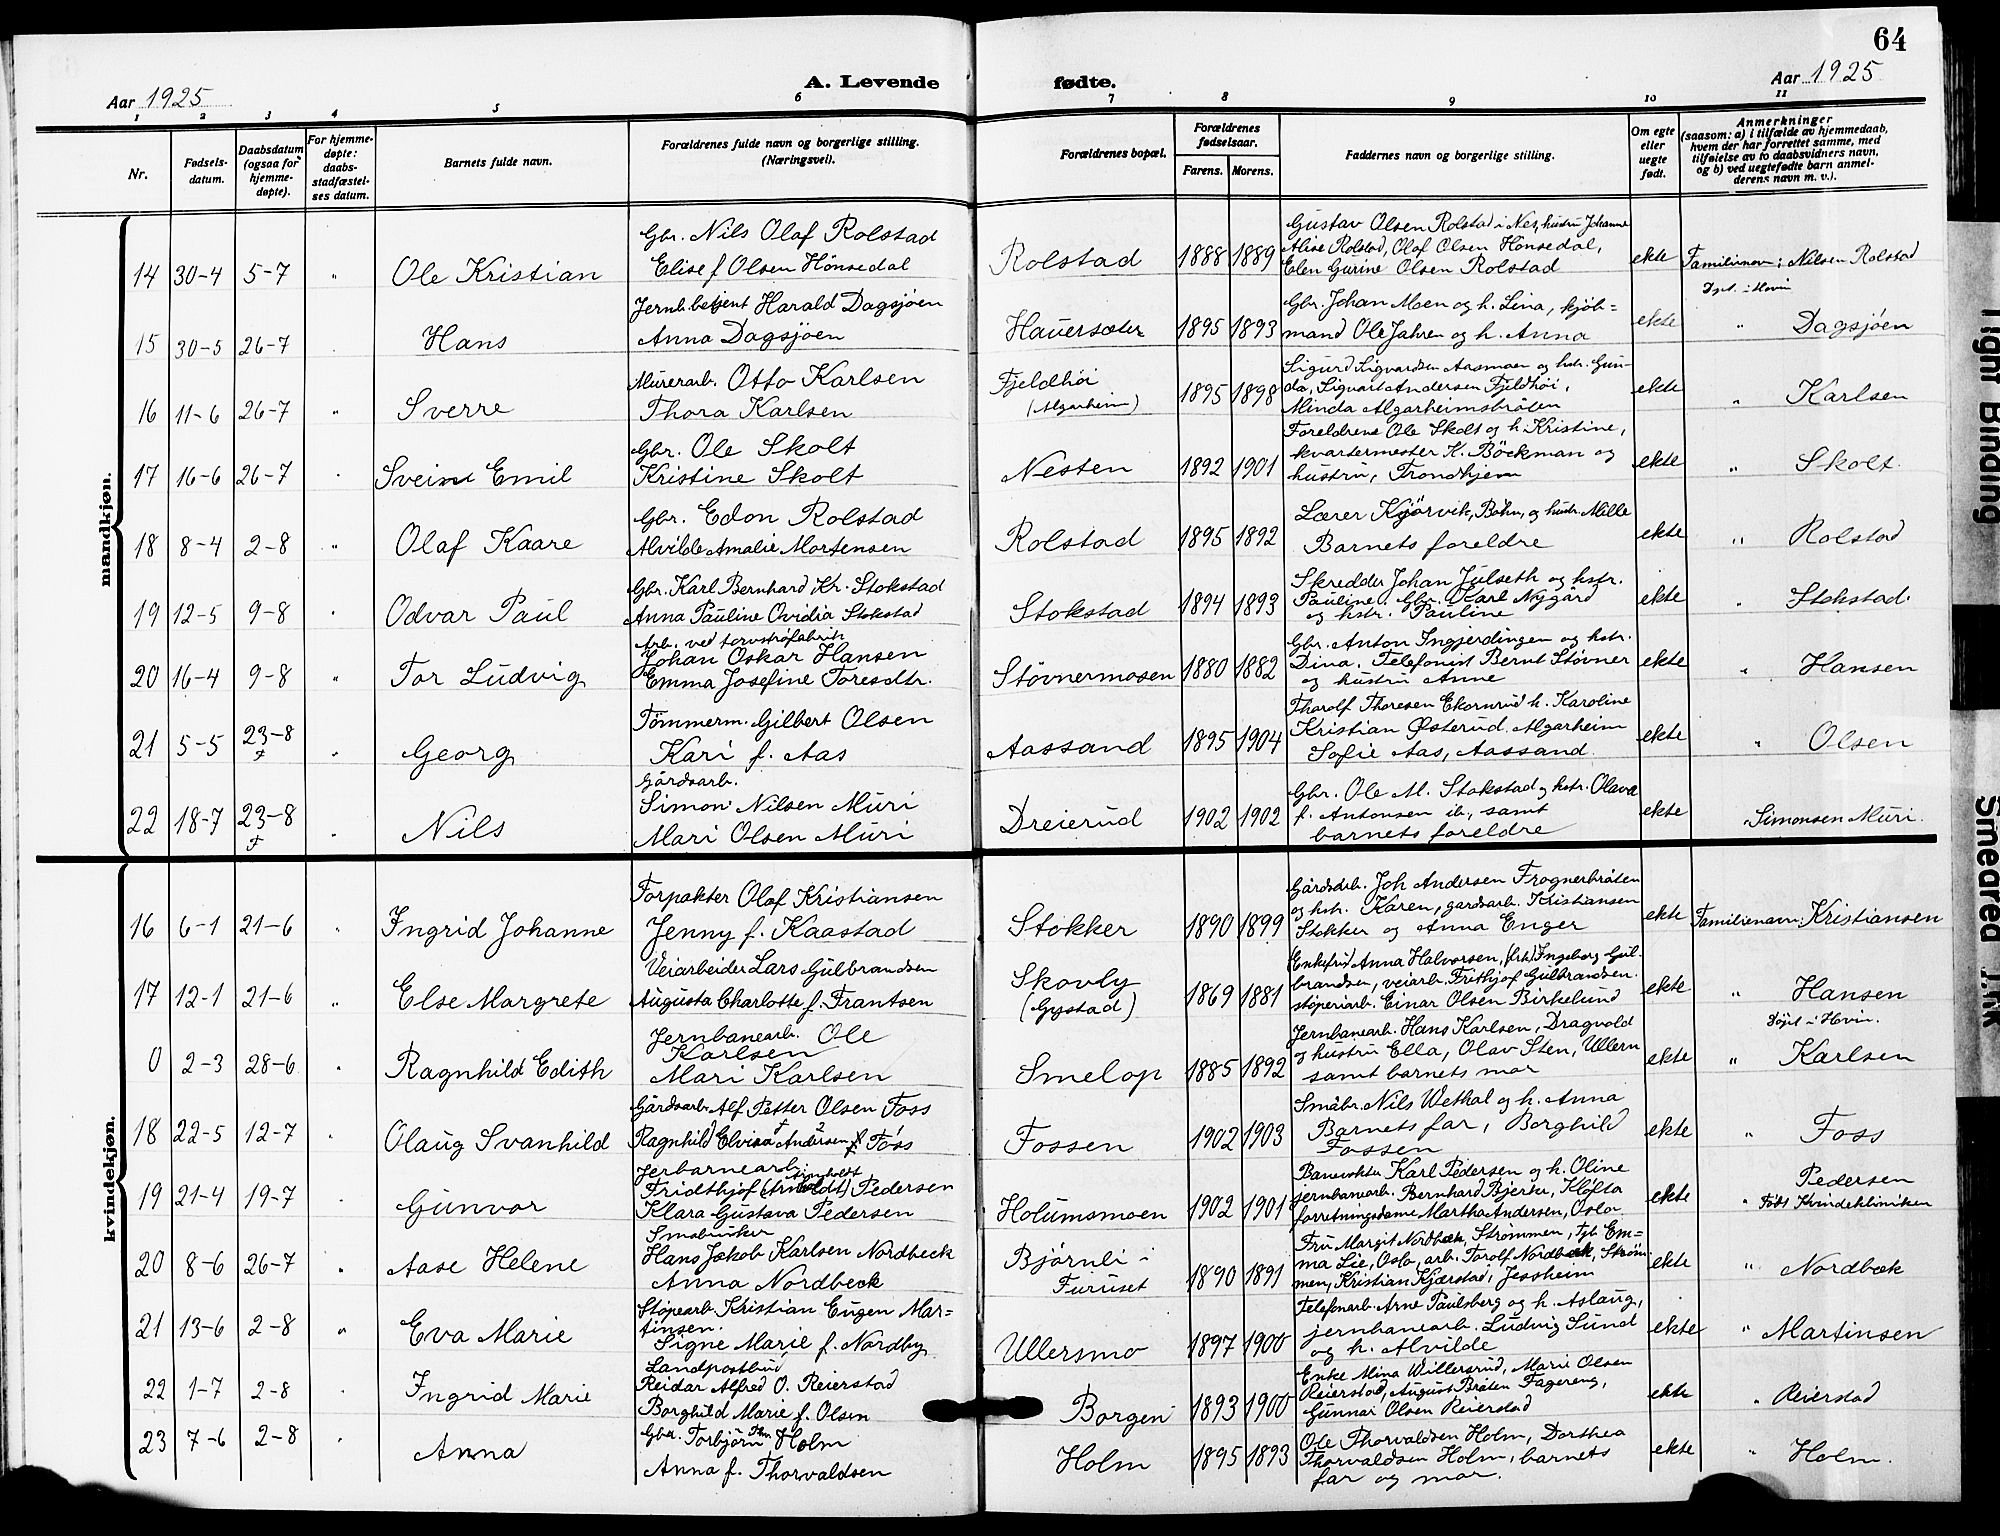 64
Aar 1925
A. Levende fødte.
Aar 1925
1 2 3 4 5 6 7 8 9 10 11
Nr.
Fødsels-
datum.
Daabsdatum
(ogsaa for
hjemme-
døpte).
For hjemme-
døpte:
daabs-
stadfæstel-
ses datum.
Barnets fulde navn.
Forældrenes fulde navn og borgerlige stilling.
(Næringsvei).
Forældrenes bopæl.
Forældrenes
fødselsaar.
Farens. Morens.
Faddernes navn og borgerlige stilling.
Om egte
eller
uegte
født.
Anmerkninger
(saasom: a) i tilfælde av hjemmedaab,
hvem der har forrettet samme, med
tilføielse av to daabsvidners navn,
og b) ved uegtefødte barn anmel-
derens navn m. v.).
mandkjøn.
14 30-4 5-7 " Ole Kristian
Gbr. Nils Olaf Rolstad
Elise f. Olsen Hønsedal
Rolstad 1888 1889
Gustav Olsen Rolstad i Nes, hustru Johanne
Alise Rolstad, Olaf Olsen Hønsedal,
Elen Gurine Olsen Rolstad
ekte Familienavn: Nilsen Rolstad
Døpt i Hovin
15 30-5 26-7 Hans
Jernb.betjent Harald Dagsjøen
Anna Dagsjøen
Hauersæter 1895 1893
Gbr. Johan Moen og h. Lina, kjøb=
mand Ole Jahren og h. Anna
ekte " Dagsjøen
16 11-6 26-7 " Sverre
Murerarb. Otto Karlsen
Thora Karlsen
Fjeldhøi
(Algarheim) 1895 1898
Sigurd Sigvardsen Aasmoen og hstr. Gun-
da, Sigvart Andersen Fjeldhøi,
Minda Algarheimsbråten
ekte " Karlsen
17 16-6 26-7 " Svein Emil
Gbr. Ole Skolt
Kristine Skolt
Nesten 1892 1901
Foreldrene Ole Skolt og h. Kristine,
kvartermester K. Böckman og
hustru, Trondhjem
ekte " Skolt
18 8-4 2-8 " Olaf Kaare
Gbr. Edon Rolstad
Alvilde Amalie Mortensen
Rolstad 1895 1892
Lærer Kjörvik, Böhn, og hustr. Mille
Barnets foreldre
ekte " Rolstad
19 12-5 9-8 " Odvar Paul
Gbr. Karl Bernhard Kr. Stokstad
Anna Pauline Ovidia Stokstad
Stokstad 1894 1893
Skredder Johan Julseth og hstr.
Pauline. Gbr. Karl Nygård
og hstr. Pauline
ekte " Stokstad
20 16-4 9-8 " Tor Ludvig
Arb. ved torvstrøfabrik
Johan Oskar Hansen
Emma Josefine Toresdtr.
Støvnermosen 1880 1882
Gbr. Anton Ingjerdingen og hstr.
Dina. Telefonist Bernt Støvner
og hustru Anne
ekte " Hansen
21 5-5 23-8 " Georg
Tömmerm. Gilbert Olsen
Kari f. Aas
Aassand 1895 1904
Tharolf Thoresen Ekornrud h. Karoline
Kristian Østerud Algarheim
Sofie Aas, Aassand.
ekte " Olsen
22 18-7 23-8 " Nils
Gårdsarb.
Simon Nilsen Muri
Mari Olsen Muri
Dreierud 1902 1902
Gbr. Ole M. Stokstad og hstr. Olava
f. Antonsen ib., samt
barnets foreldre
ekte " Simonsen Muri.
kvindekjøn.
16 6-1 21-6 " Ingrid Johanne
Forpakter Olaf Kristiansen
Jenny f. Kaastad
Stokker 1890 1899
Gårdsarb. Joh Andersen Frognerbråten
og hstr. Karen, gardsarb. Kristiansen
Stokker og Anna Enger
ekte Familienavn: Kristiansen
17 12-1 21-6 " Else Margrete
Veiarbeider Lars Gulbrandsen
Augusta Charlotte f. Frantsen
Skovly
(Gystad) 1869 1881
(Enkefru) Anna Halvorsen, (frk) Ingeborg Gul-
brandsen, veiarb. Frithjof Gulbrandsen.
støperiarb. Einar Olsen Birkelund
ekte " Hansen
Døpt i Hovin.
0 2-3 28-6 " Ragnhild Edith
Jernbanearb. Ole
Karlsen
Mari Karlsen
Smelop 1885 1892
Jernbanearb. Hans Karlsen, Dragvold
og hustru Ella, Olav Sten, Ullern
samt barnets mor
ekte " Karlsen
18 22-5 12-7 " Olaug Svanhild
Gårdsarb. Alf Petter Olsen Foss
Ragnhild Elvira Andersen Foss
Fossen 1902 1903
Småbr. Nils Wethal og h. Anna
Barnets far, Borghild
Fossen
ekte " Foss
19 21-4 19-7 " Gunvor
Jerbanearb.
Fridthjof Pedersen
Klara Gustava Pedersen
Holumsmoen 1902 1901
Banevokter Karl Pedersen og h. Oline
jernbanearb. Bernhard Bjerke, Kløfta
forretningsdame Martha Andersen, Oslo
ekte " Pedersen
Föds Kvindeklinikken
20 8-6 26-7 " Aase Helene
Småbruker
Hans Jakob Karlsen Nordbeck
Anna Nordbeck
Bjørnli i
Furuset 1890 1891
Fru Margit Nordbæk, Strømmen, Em=
ma Lie, Oslo, arb. Torolf Nordbæk, Strøm
men, Kristian Kjærstad, Jessheim
ekte " Nordbæk
21 13-6 2-8 " Eva Marie
Støpearb. Kristian Eugen Mar=
tinsen.
Signe Marie f. Nordby
Ullersmo 1897 1900
Telefonarb. Arne Paulsberg og h. Aslaug,
jernbanearb. Ludvig Sund
og h. Alvilde
ekte " Martinsen
22 1-7 2-8 " Ingrid Marie
Landpostbud
Reidar Alfred O. Reierstad
Borghild Marie f. Olsen
Borgen 1893 1900
Enke Mina Willersrud, Marie Olsen
Reierstad, August Bråten Fagereng,
Gunnar Olsen Reierstad
ekte " Reierstad
23 7-6 2-8 " Anna
Gbr. Torbjörn Holm
Anna f. Thorvaldsen
Holm 1895 1893
Ole Thorvaldsen Holm, Dorthea
Thorvaldsen Holm, barnets
far og mor.
ekte " Holm.
Tight Binding
Smeared Ink